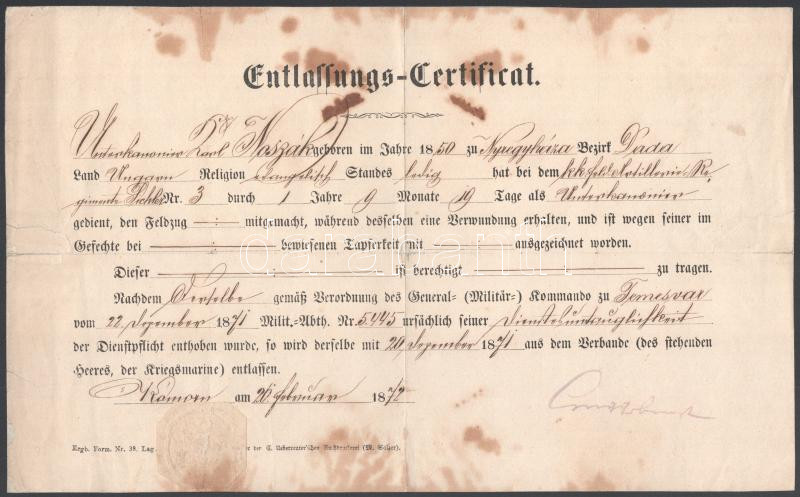 Entlassungs-Certificat.
Unterkanonier Karl Noszák geboren im Jahre 1850 zu Nyiregyháza Bezirk Dada
Land Ungarn Religion evangelisch Standes ledig hat bei dem k k Feld Artillerie Re-
giments Nr. 3 durch 1 Jahre 9 Monate 19 Tage als Unterkanonier
gedient, den Feldzug —:— mitgemacht, während desselben eine Verwundung erhalten, und ist wegen seiner im
Gefechte bei —:— bewiesenen Tapferkeit mit — ausgezeichnet worden.
Dieser —:— ist berechtigt — zu tragen.
Nachdem Derselbe gemäß Verordnung des General- (Militär-) Kommando zu Temesvar
vom 22. Dezember 1871 Milit.-Abth. Nr. 5445 ursächlich seiner Dienstesuntauglichkeit
der Dienstpflicht enthoben wurde, so wird derselbe mit 20 Dezember 1871 aus dem Verbande (des stehenden
Heeres, der Kriegsmarine) entlassen.
Komorn am 26. Februar 1872
Ergb. Form. Nr. 38. Lag der C. Ueberreuter'schen Buchdruckerei (M. Salzer).
darabanth